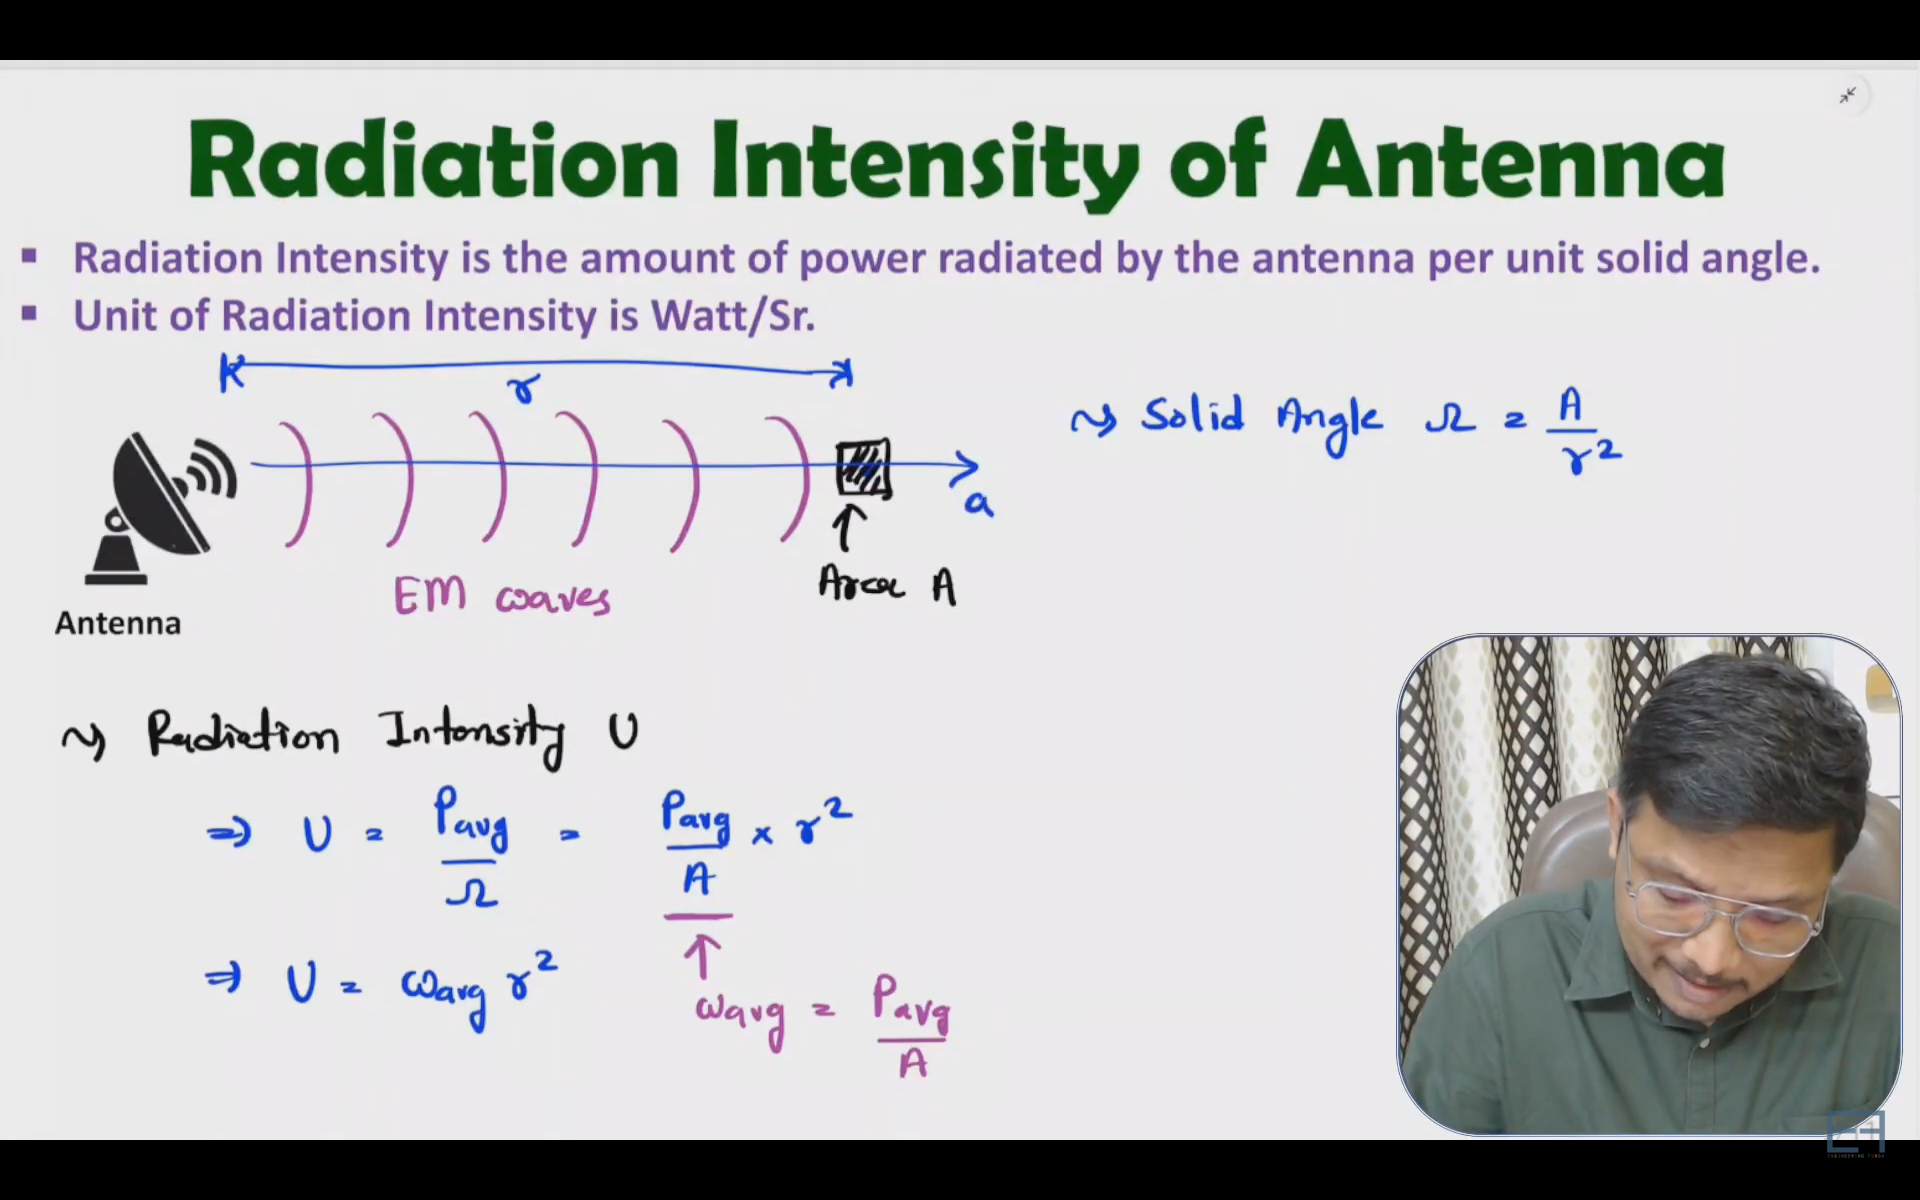 Radiation Intensity of Antenna
▪ Radiation Intensity is the amount of power radiated by the antenna per unit solid angle.
▪ Unit of Radiation Intensity is Watt/Sr.
r
~> Solid Angle Ω = A/r²
a
EM waves
Area A
Antenna
~> Radiation Intensity U
⇒ U = Pavg/Ω = Pavg/A × r²
⇒ U = ωavg r²
ωavg = Pavg/A
ENGINEERING FUNDA